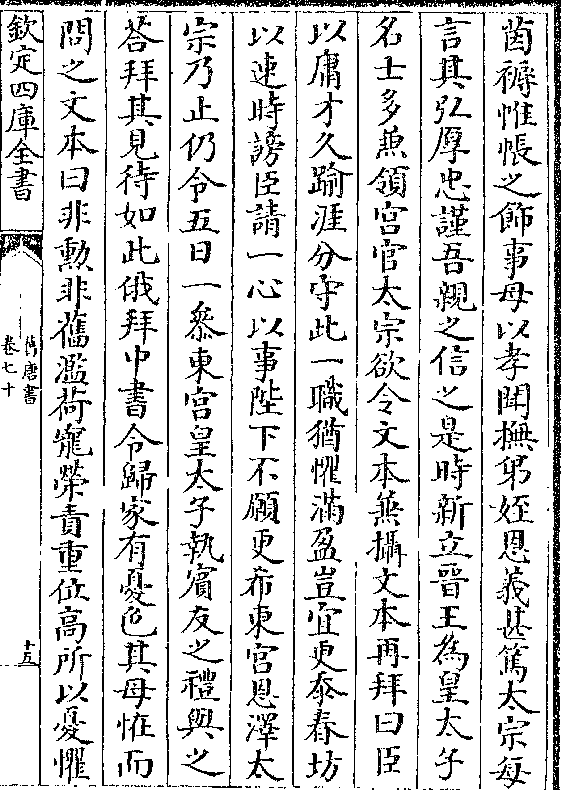 茵褥帷帳之飾事母以孝聞撫弟姪恩義甚篤太宗每
言其弘厚忠謹吾親之信之是時新立晉王為皇太子
名士多兼領宫官太宗欲令文本兼攝文本再拜曰臣
以庸才久踰涯分守此一職猶懼滿盈豈宜更忝春坊
以速時謗臣請一心以事陛下不願更希東宫恩澤太
宗乃止仍令五日一叅東宫皇太子執賓友之禮與之
荅拜其見待如此俄拜中書令歸家有憂色其母恠而
問之文本曰非勲非舊濫荷寵榮責重位高所以憂懼
欽定四庫全書
舊唐書
卷七十
十五